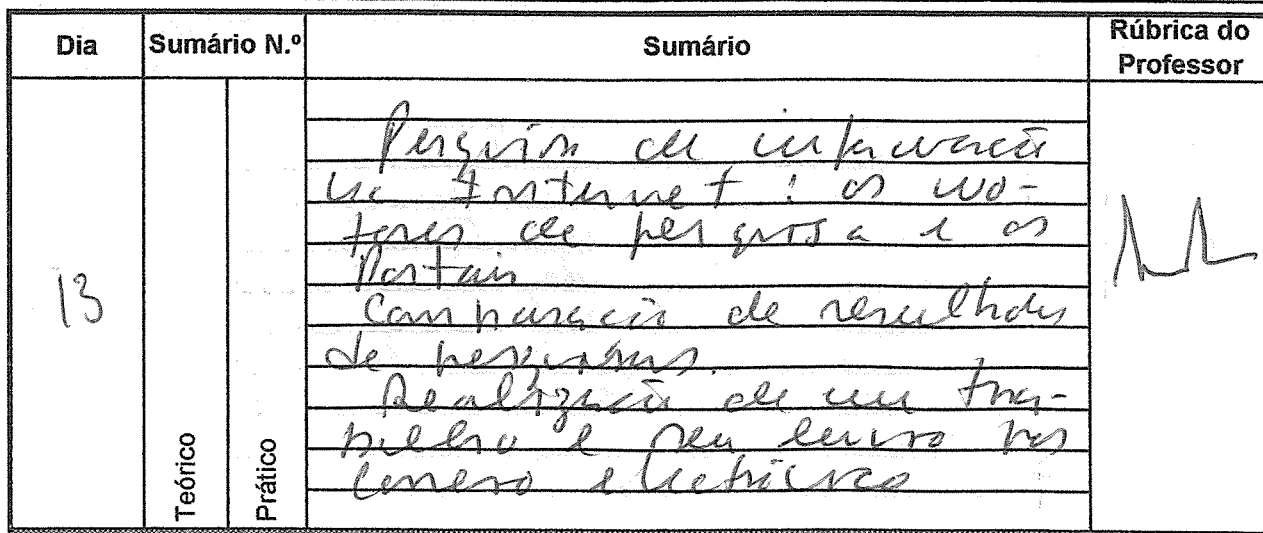 Dia Sumário N.º Sumário Rúbrica do Professor
Pesquisa de informação
na Internet: os mo-
tores de pesquisa e os
Portais
13
Comparação de resultados
de pesquisas.
Realização de um tra-
balho e seu envio por
correio electrónico
Teórico
Prático